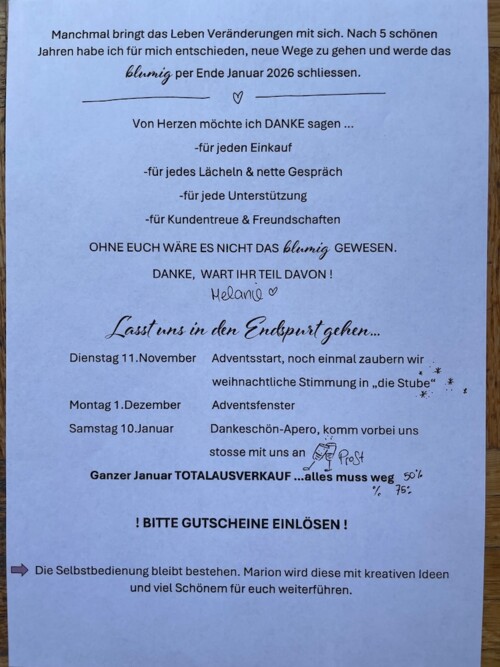 Manchmal bringt das Leben Veränderungen mit sich. Nach 5 schönen
Jahren habe ich für mich entschieden, neue Wege zu gehen und werde das
blumig per Ende Januar 2026 schliessen.
Von Herzen möchte ich DANKE sagen ...
-für jeden Einkauf
-für jedes Lächeln & nette Gespräch
-für jede Unterstützung
-für Kundentreue & Freundschaften
OHNE EUCH WÄRE ES NICHT DAS blumig GEWESEN.
DANKE, WART IHR TEIL DAVON !
Melanie
Lasst uns in den Endspurt gehen...
Dienstag 11.November Adventsstart, noch einmal zaubern wir
weihnachtliche Stimmung in „die Stube“
Montag 1.Dezember Adventsfenster
Samstag 10.Januar Dankeschön-Apero, komm vorbei uns
stosse mit uns an Prost
Ganzer Januar TOTALAUSVERKAUF ...alles muss weg 50%
% 75%
! BITTE GUTSCHEINE EINLÖSEN !
Die Selbstbedienung bleibt bestehen. Marion wird diese mit kreativen Ideen
und viel Schönem für euch weiterführen.